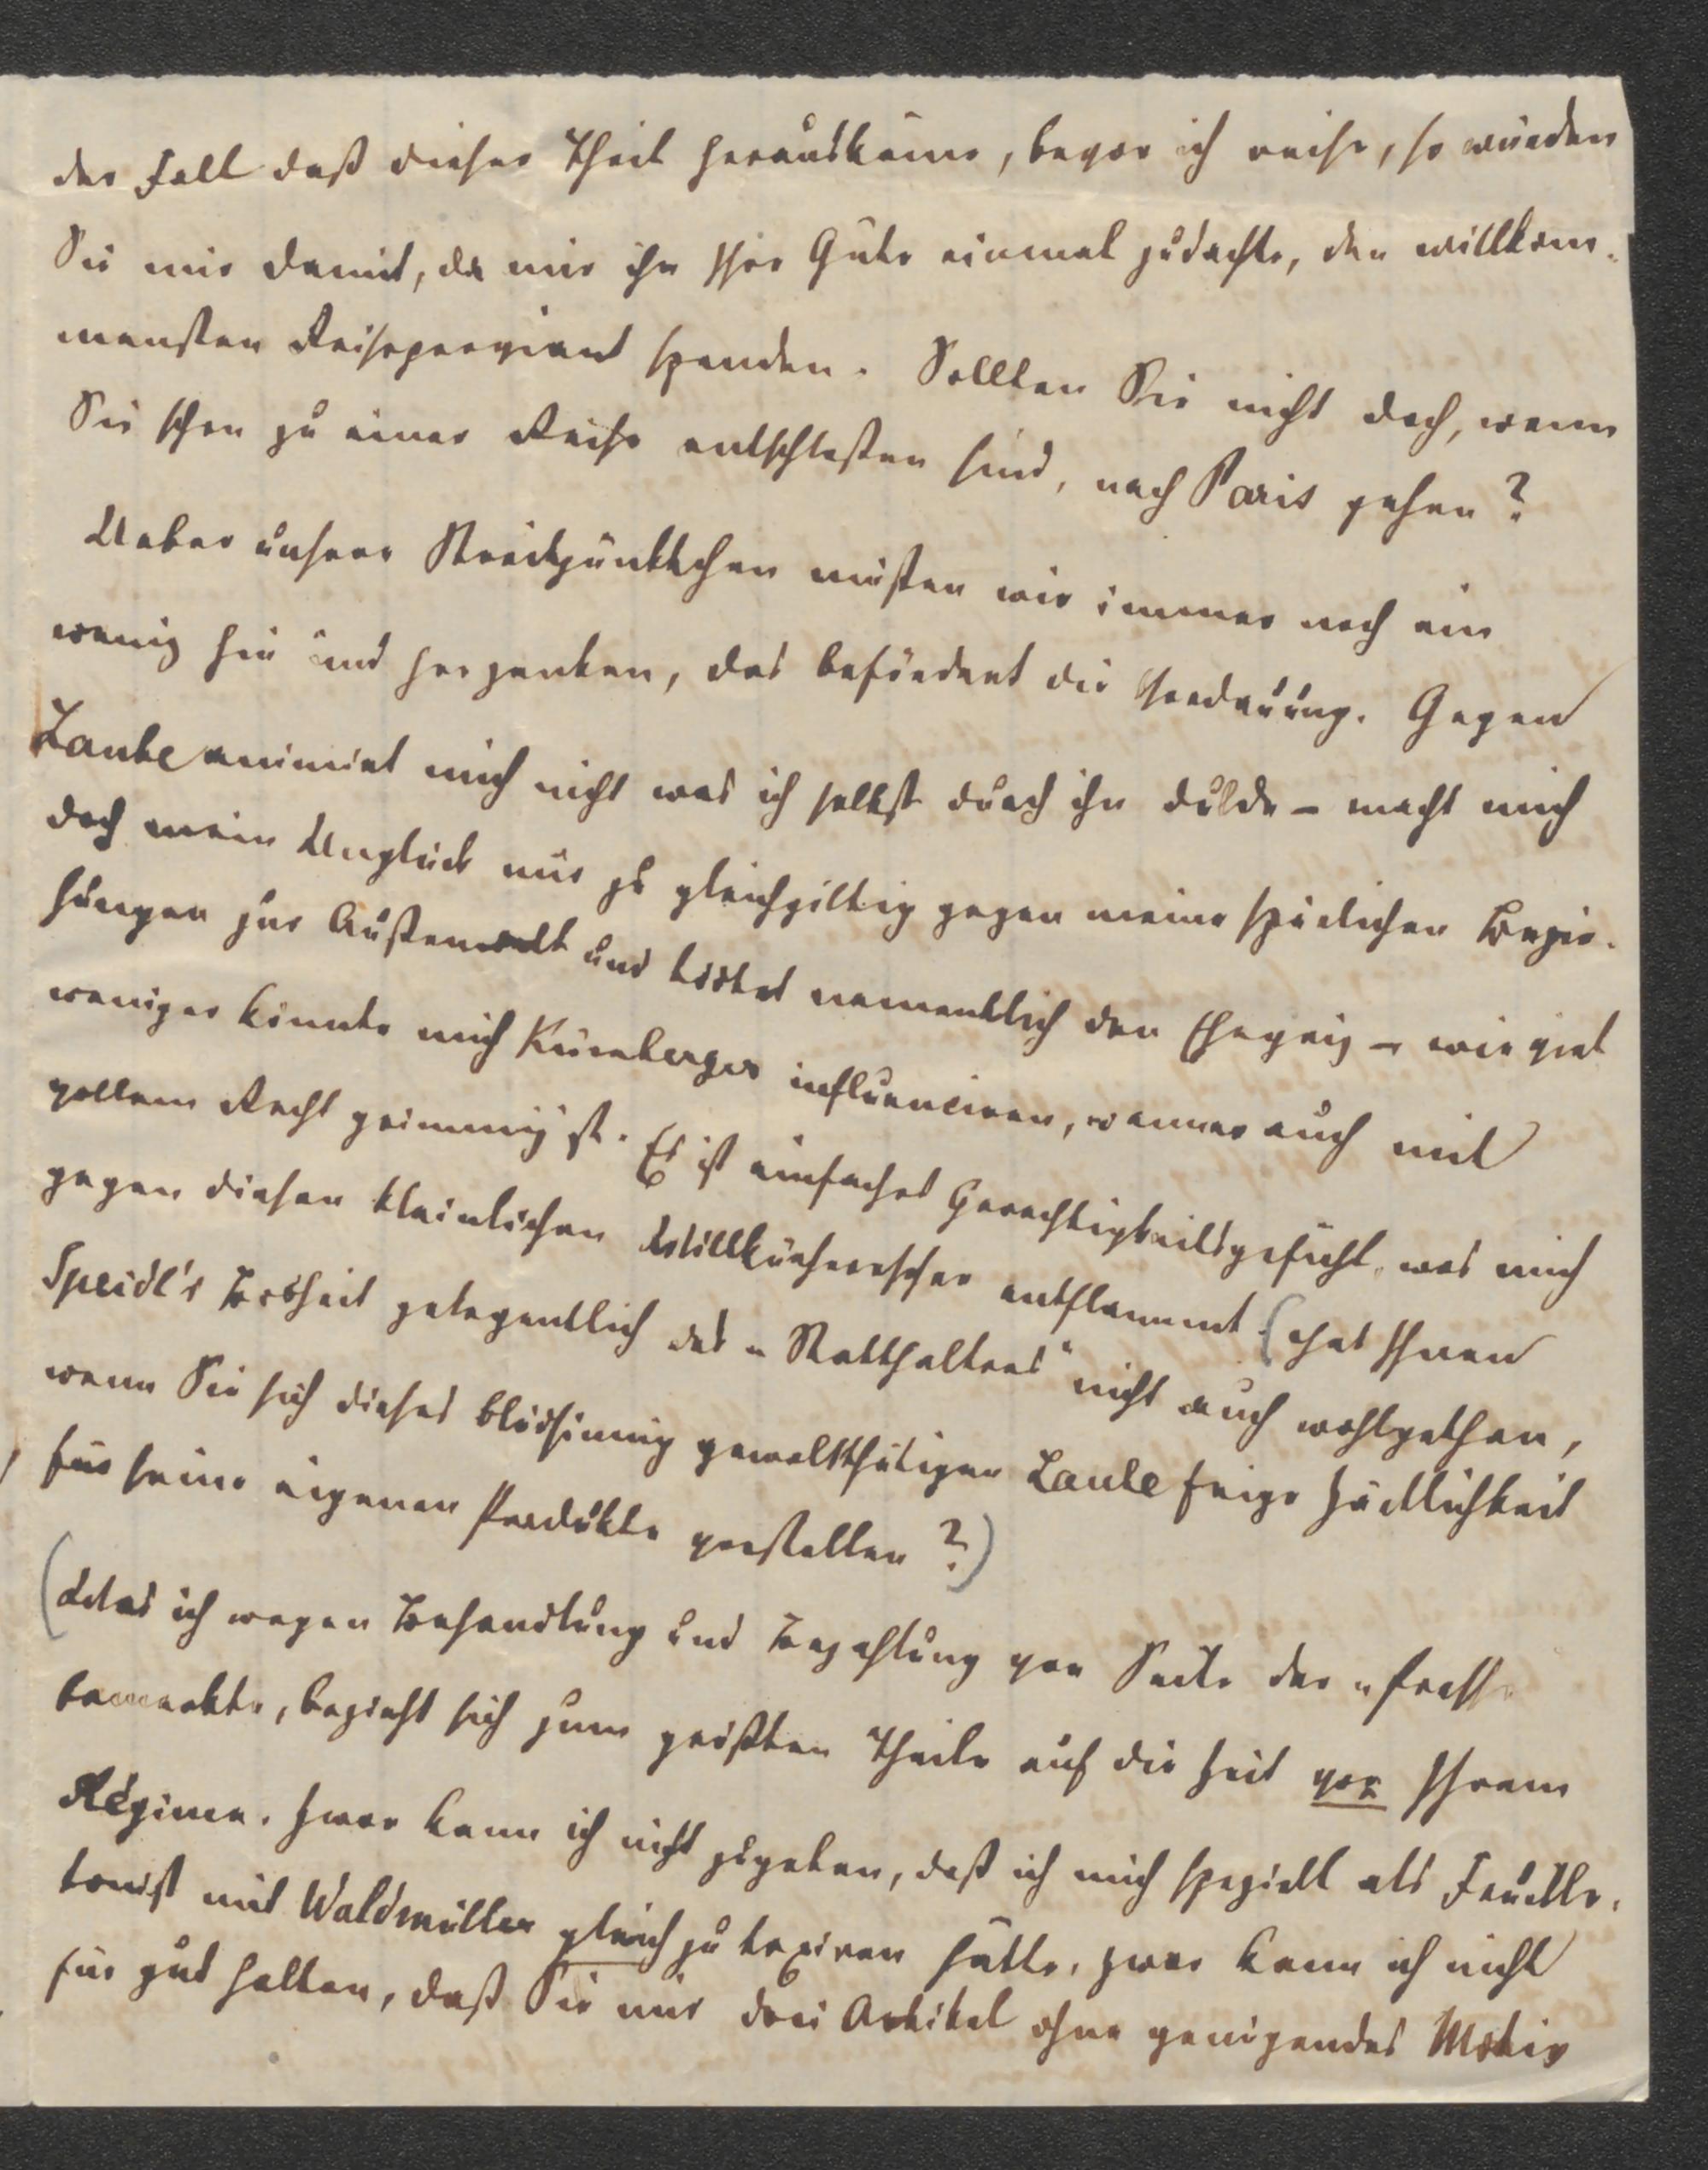 der Fall daß dieser Theil herauskäme, bevor ich reise, so würden
Sie mir damit, da mir ihn Ihre Güte einmal zudachte, den willkom-
mensten Reiseproviant spenden. Sollten Sie nicht doch, wenn
Sie schon zu einer Reise entschloßen sind, nach Paris gehen?
Ueber unsere Streitpünktchen müßen wir immer noch ein
wenig hin und her zanken, das befördert die Verdauung. Gegen
Laube animirt mich nicht was ich selbst durch ihn dulde – macht mich
doch mein Unglück nur zu gleichgiltig gegen meine spärlichen Bezie-
hungen zur Außenwelt und tödtet namentlich den Ehrgeiz – wie viel
weniger könnte mich Kürnberger influenciren, wenner auch mit
vollem Recht grimmig ist. Es ist einfaches Gerechtigkeitsgefühl, was mich
gegen diesen kleinlichen Willkürherrscher entflammt (hat Ihnen
Speidl's Bosheit gelegentlich des „Statthalters" nicht auch wohlgethan,
wenn Sie sich dieses blödsinnig gewaltthätigen Laube feige Zärtlichkeit
für seine eigenen Produkte vorstellen?)
(Was ich wegen Behandlung und Bezahlung von Seite der „Presse
bemerkte, bezieht sich zum größten Theile auf die Zeit vor Ihrem
Régime. Zwar kann ich nicht zugeben, daß ich mich speziell als Feuille-
tonist mit Waldmüller gleich zu taxiren hätte, zwar kann ich nicht
für gut halten, daß Sie mir drei Artikel ohne genügendes Motiv